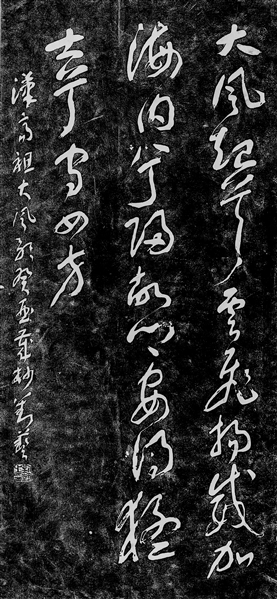 大風起兮雲飛揚威加
海内兮歸故鄉安得猛
士兮守四方
漢高祖大風歌癸亥歲杪劉藝